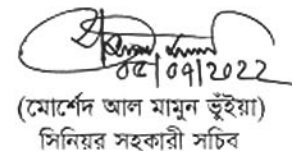 ০৫/০৭/2022
(মোর্শেদ আল মামুন ভূঁইয়া)
সিনিয়র সহকারী সচিব